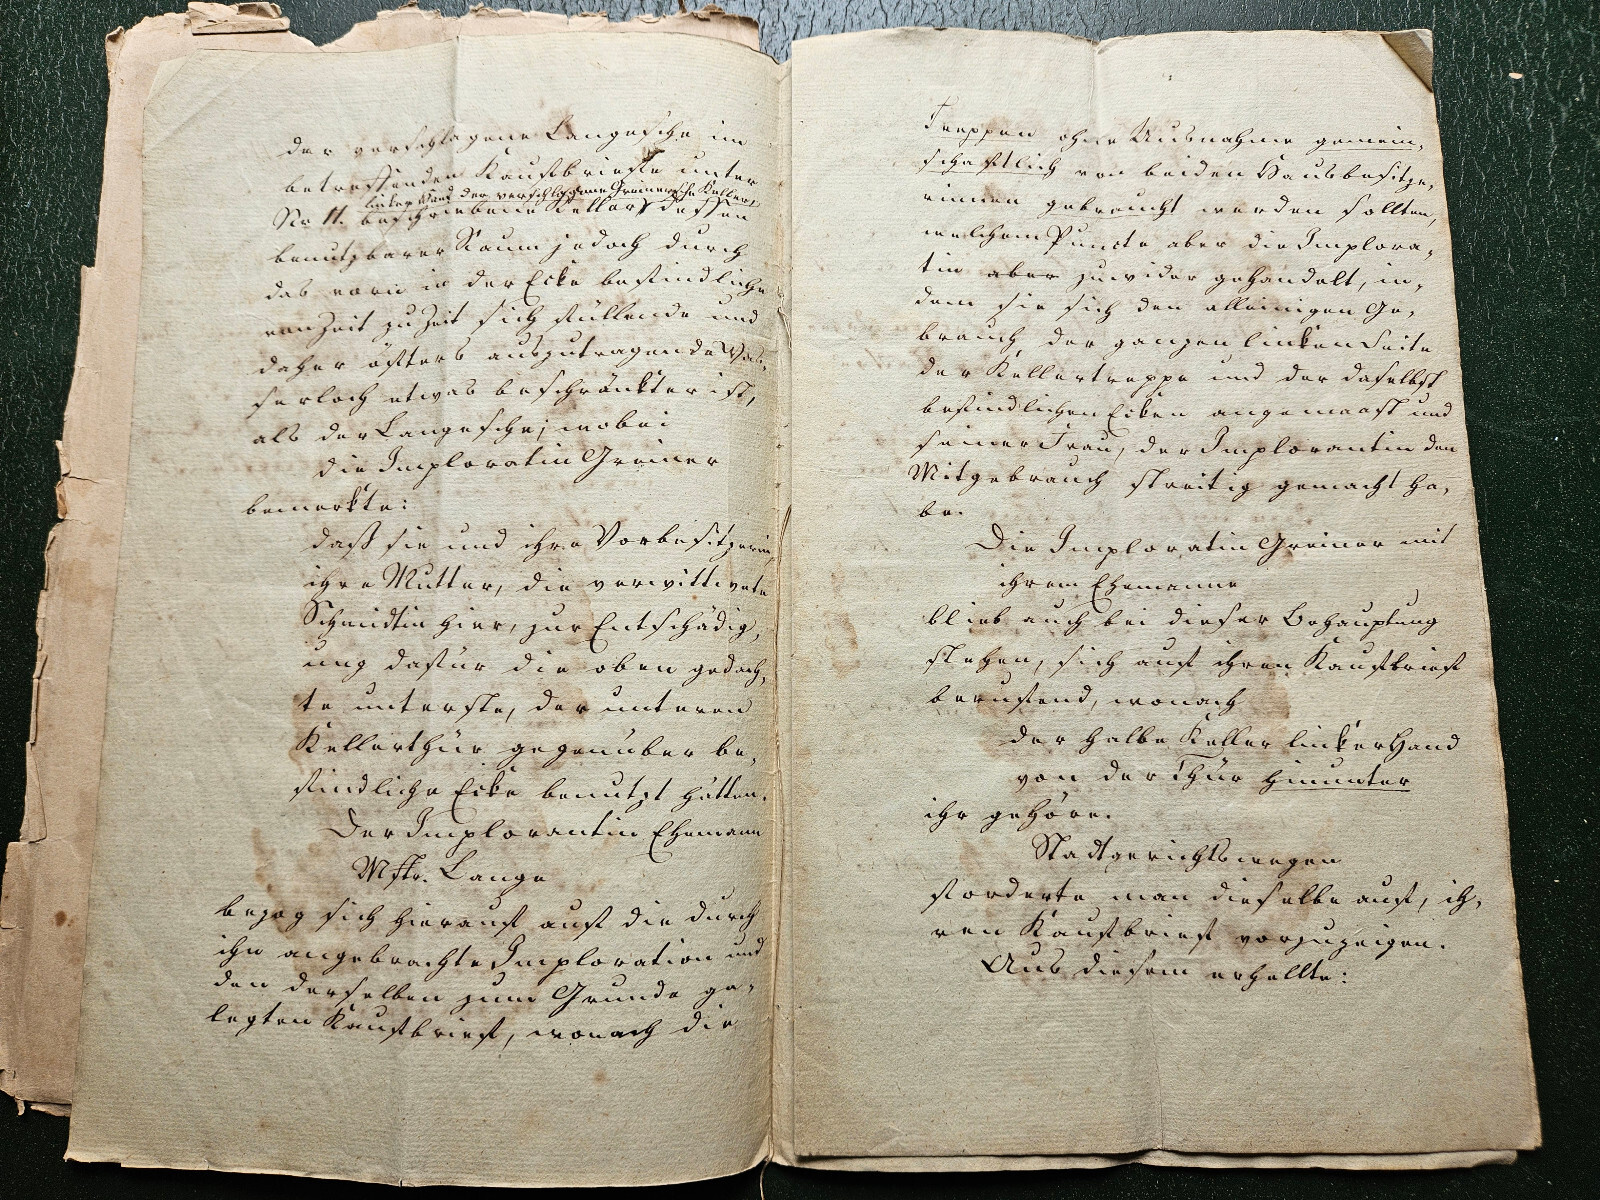 der verschlagene Langesche im
betreffenden Kaufbriefe unter
linker Hand der verschlagene Greinersche Keller,
No 11. beschriebene Keller, dessen
benutzbarer Raum jedoch durch
das vorn in der Ecke befindliche
von Zeit zu Zeit sich füllende und
daher öfters auszutragende Was-
serloch etwas beschränkter ist,
als der Langesche; wobei
die Imploratin Greiner
bemerkte:
daß sie und ihre Vorbesitzerin,
ihre Mutter, die verwittwete
Schmidtin hier, zur Entschädig-
ung dafür die oben gedach-
te unterste, der unteren
Kellerthür gegenüber be-
findliche Ecke benutzt hätten.
Der Implorantin Ehemann
Mstr. Lange
bezog sich hierauf auf die durch
ihn angebrachte Imploration und
den derselben zum Grunde ge-
legten Kaufbrief, wonach die
Treppen ohne Ausnahme gemein-
schaftlich von beiden Hausbesitze-
rinnen gebraucht werden sollten,
welchem Puncte aber die Implora-
tin aber zuwider gehandelt, in-
dem sie sich den alleinigen Ge-
brauch der ganzen linken Seite
der Kellertreppe und der daselbst
befindlichen Ecken angemaast und
seiner Frau, der Implorantin den
Mitgebrauch streitig gemacht ha-
be.
Die Imploratin Greiner mit
ihrem Ehemanne
blieb auch bei dieser Behauptung
stehen, sich auf ihren Kaufbrief
berufend, wonach
der halbe Keller linker Hand
von der Thür hinunter
ihr gehöre.
Stadtgerichtswegen
forderte man dieselbe auf, ih-
ren Kaufbrief vorzuzeigen.
Aus diesem erhellte: